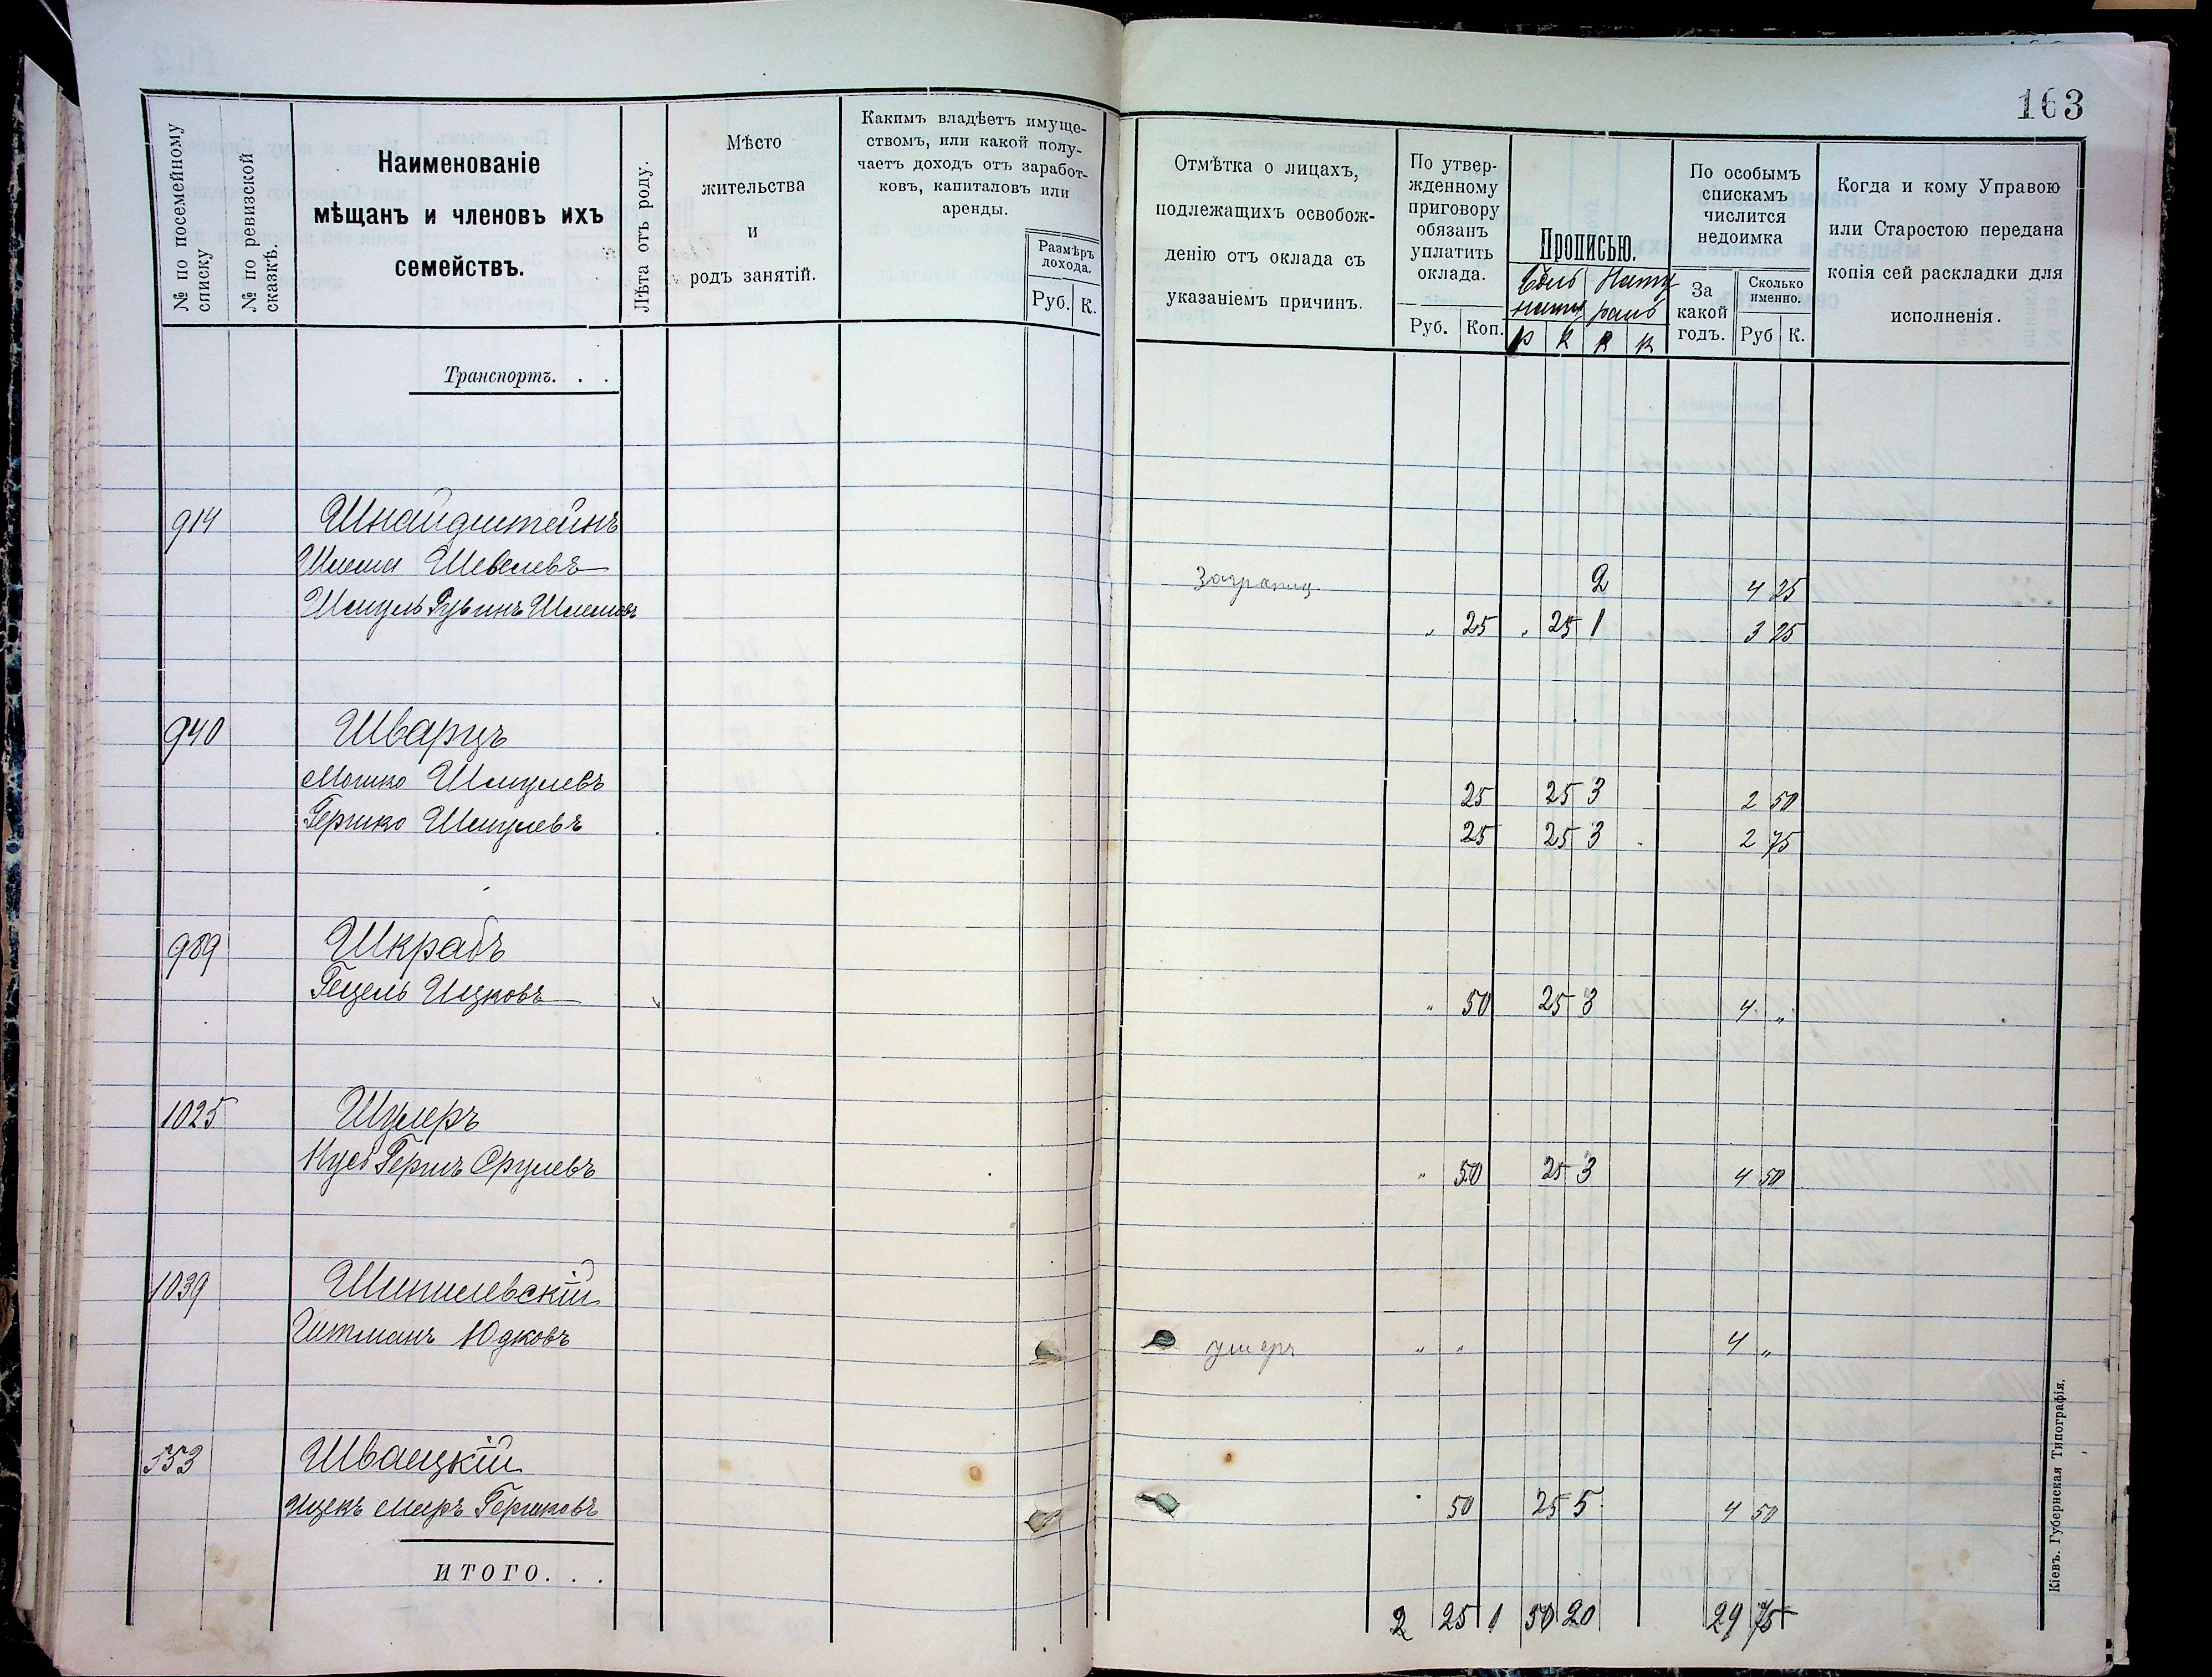 163
№ по посемейному списку
№ по ревизской сказкѣ.
Наименованіе
мѣщанъ и членовъ ихъ
семействъ.
Лѣта отъ роду.
Мѣсто
жительства
и
родъ занятій.
Какимъ владѣетъ имуще-
ствомъ, или какой полу-
чаетъ доходъ отъ заработ-
ковъ, капиталовъ или
аренды.
Размѣръ
дохода.
Руб. К.
Отмѣтка о лицахъ,
подлежащихъ освобож-
денію отъ оклада съ
указаніемъ причинъ.
По утвер-
жденному
приговору
обязанъ
уплатить
оклада.
Руб. Коп.
Прописью.
По особымъ
спискамъ
числится
недоимка
За
какой
годъ.
Сколько
именно.
Руб К.
Когда и кому Управою
или Старостою передана
копія сей раскладки для
исполненія.
Транспортъ. . .
914 Шнайдштейнъ
Шлема Шевелевъ Заграниц. 2 4 25
Шмуль Рувинъ Шлемовъ „ 25 „ 25 1 3 25
940 Шварцъ
Мошко Шмулевъ 25 25 3 2 50
Гершко Шмулевъ 25 25 3 2 75
989 Шкрабъ
Гецель Ицковъ „ 50 25 3 4 „
1025 Шулеръ
Нусъ Гершъ Срулевъ „ 50 25 3 4 50
1039 Шипилевскій
Гитманъ Юдковъ умеръ „ „ 4 „
553 Шваецкій
Ицекъ Меиръ Гершковъ 50 25 5 4 50
ИТОГО. . .
2 25 1 50 20 29 75
Кіевъ. Губернская Типографія.